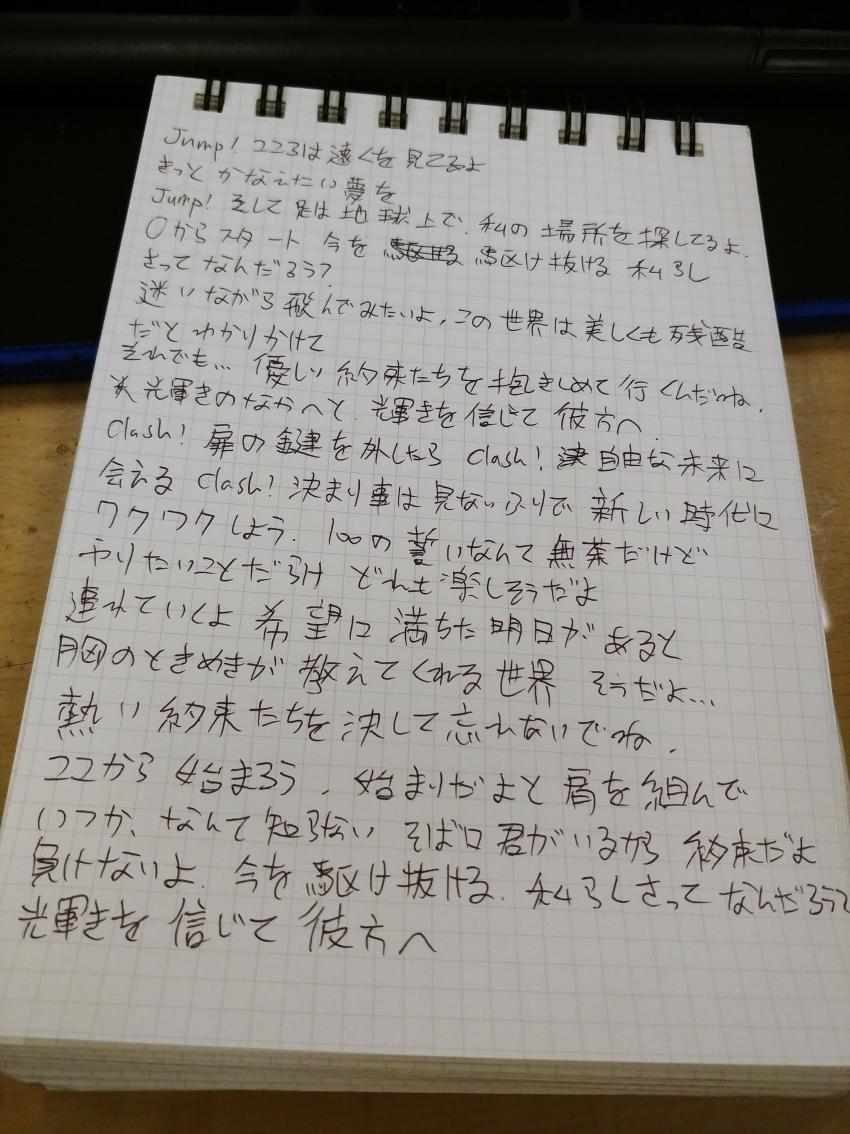 Jump! ココろは遠くを見てるよ
きっと かなえたい夢を
Jump! そして足は地球上で、私の場所を探してるよ、
0からスタート 今を 駆け抜ける 私らし
さってなんだろう?
迷いながら飛んでみたいよ、この世界は美しくも残酷
だとわかりかけて
それでも… 優しい約束たちを抱きしめて行くんだね、
光輝きのなかへと、光輝きを信じて彼方へ
Clash! 扉の鍵を外したら Clash! 自由な未来に
会える Clash! 決まり事は見ないふりで 新しい時代に
ワクワクしよう、100の誓いなんて無茶だけど
やりたいことだらけ どれも楽しそうだよ
連れていくよ 希望に満ちた明日があると
胸のときめきが教えてくれる世界 そうだよ…
熱い約束たちを決して忘れないでね、
ココから始まろう、始まりだよと肩を組んで
いつか、なんて知らない そばに君がいるから 約束だよ
負けないよ、今を駆け抜ける、私らしさってなんだろう?
光輝きを信じて彼方へ